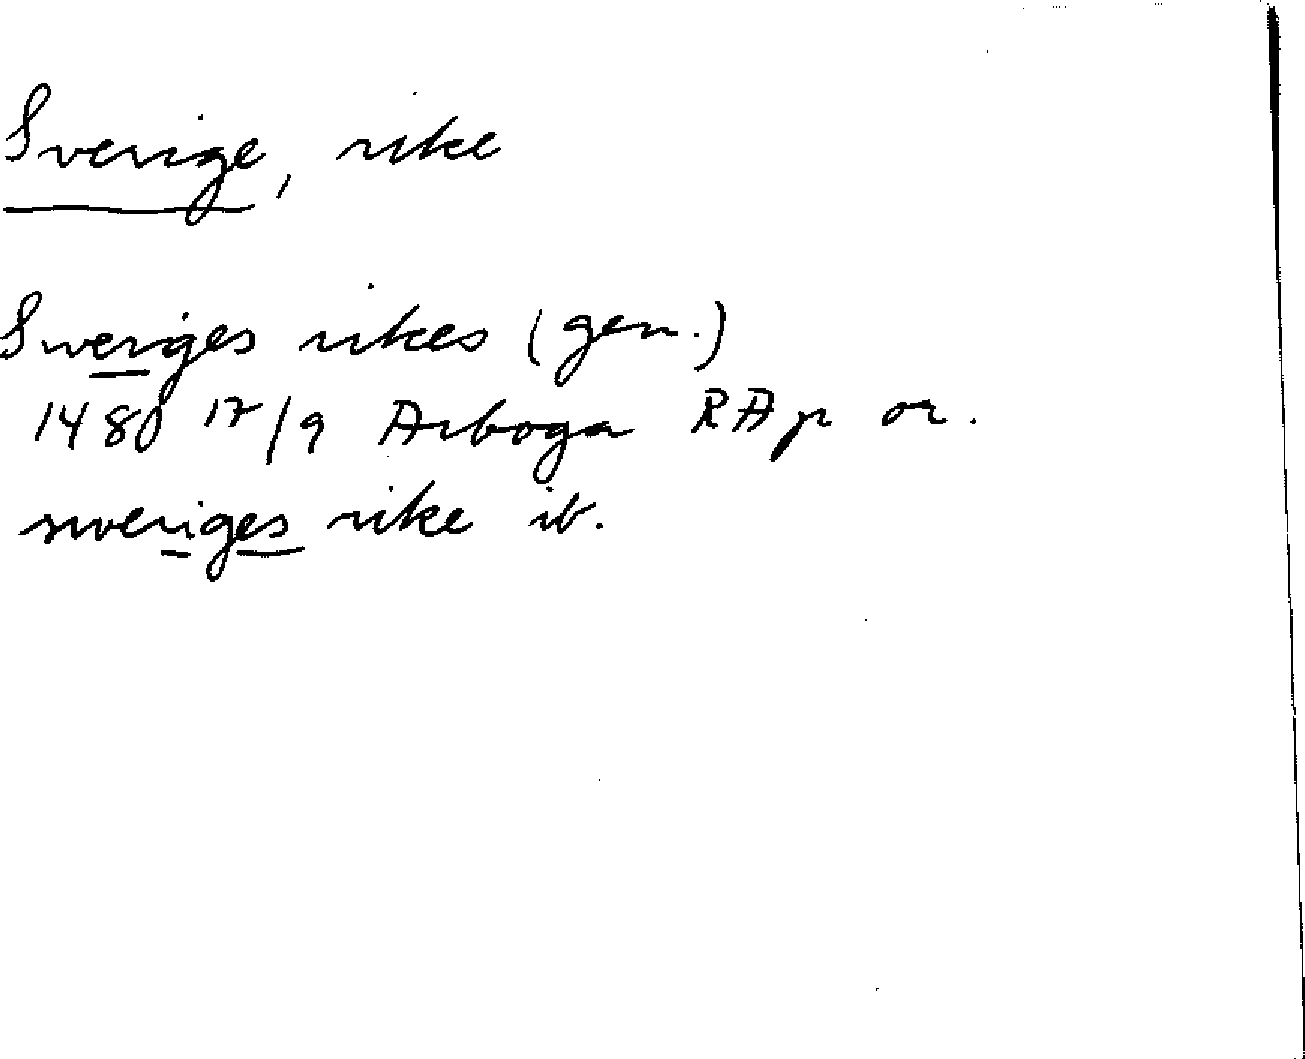 Sverige, rike
Sweriges rikes (gen.)
1480 17/9 Arboga RAp or.
sweriges rike ib.